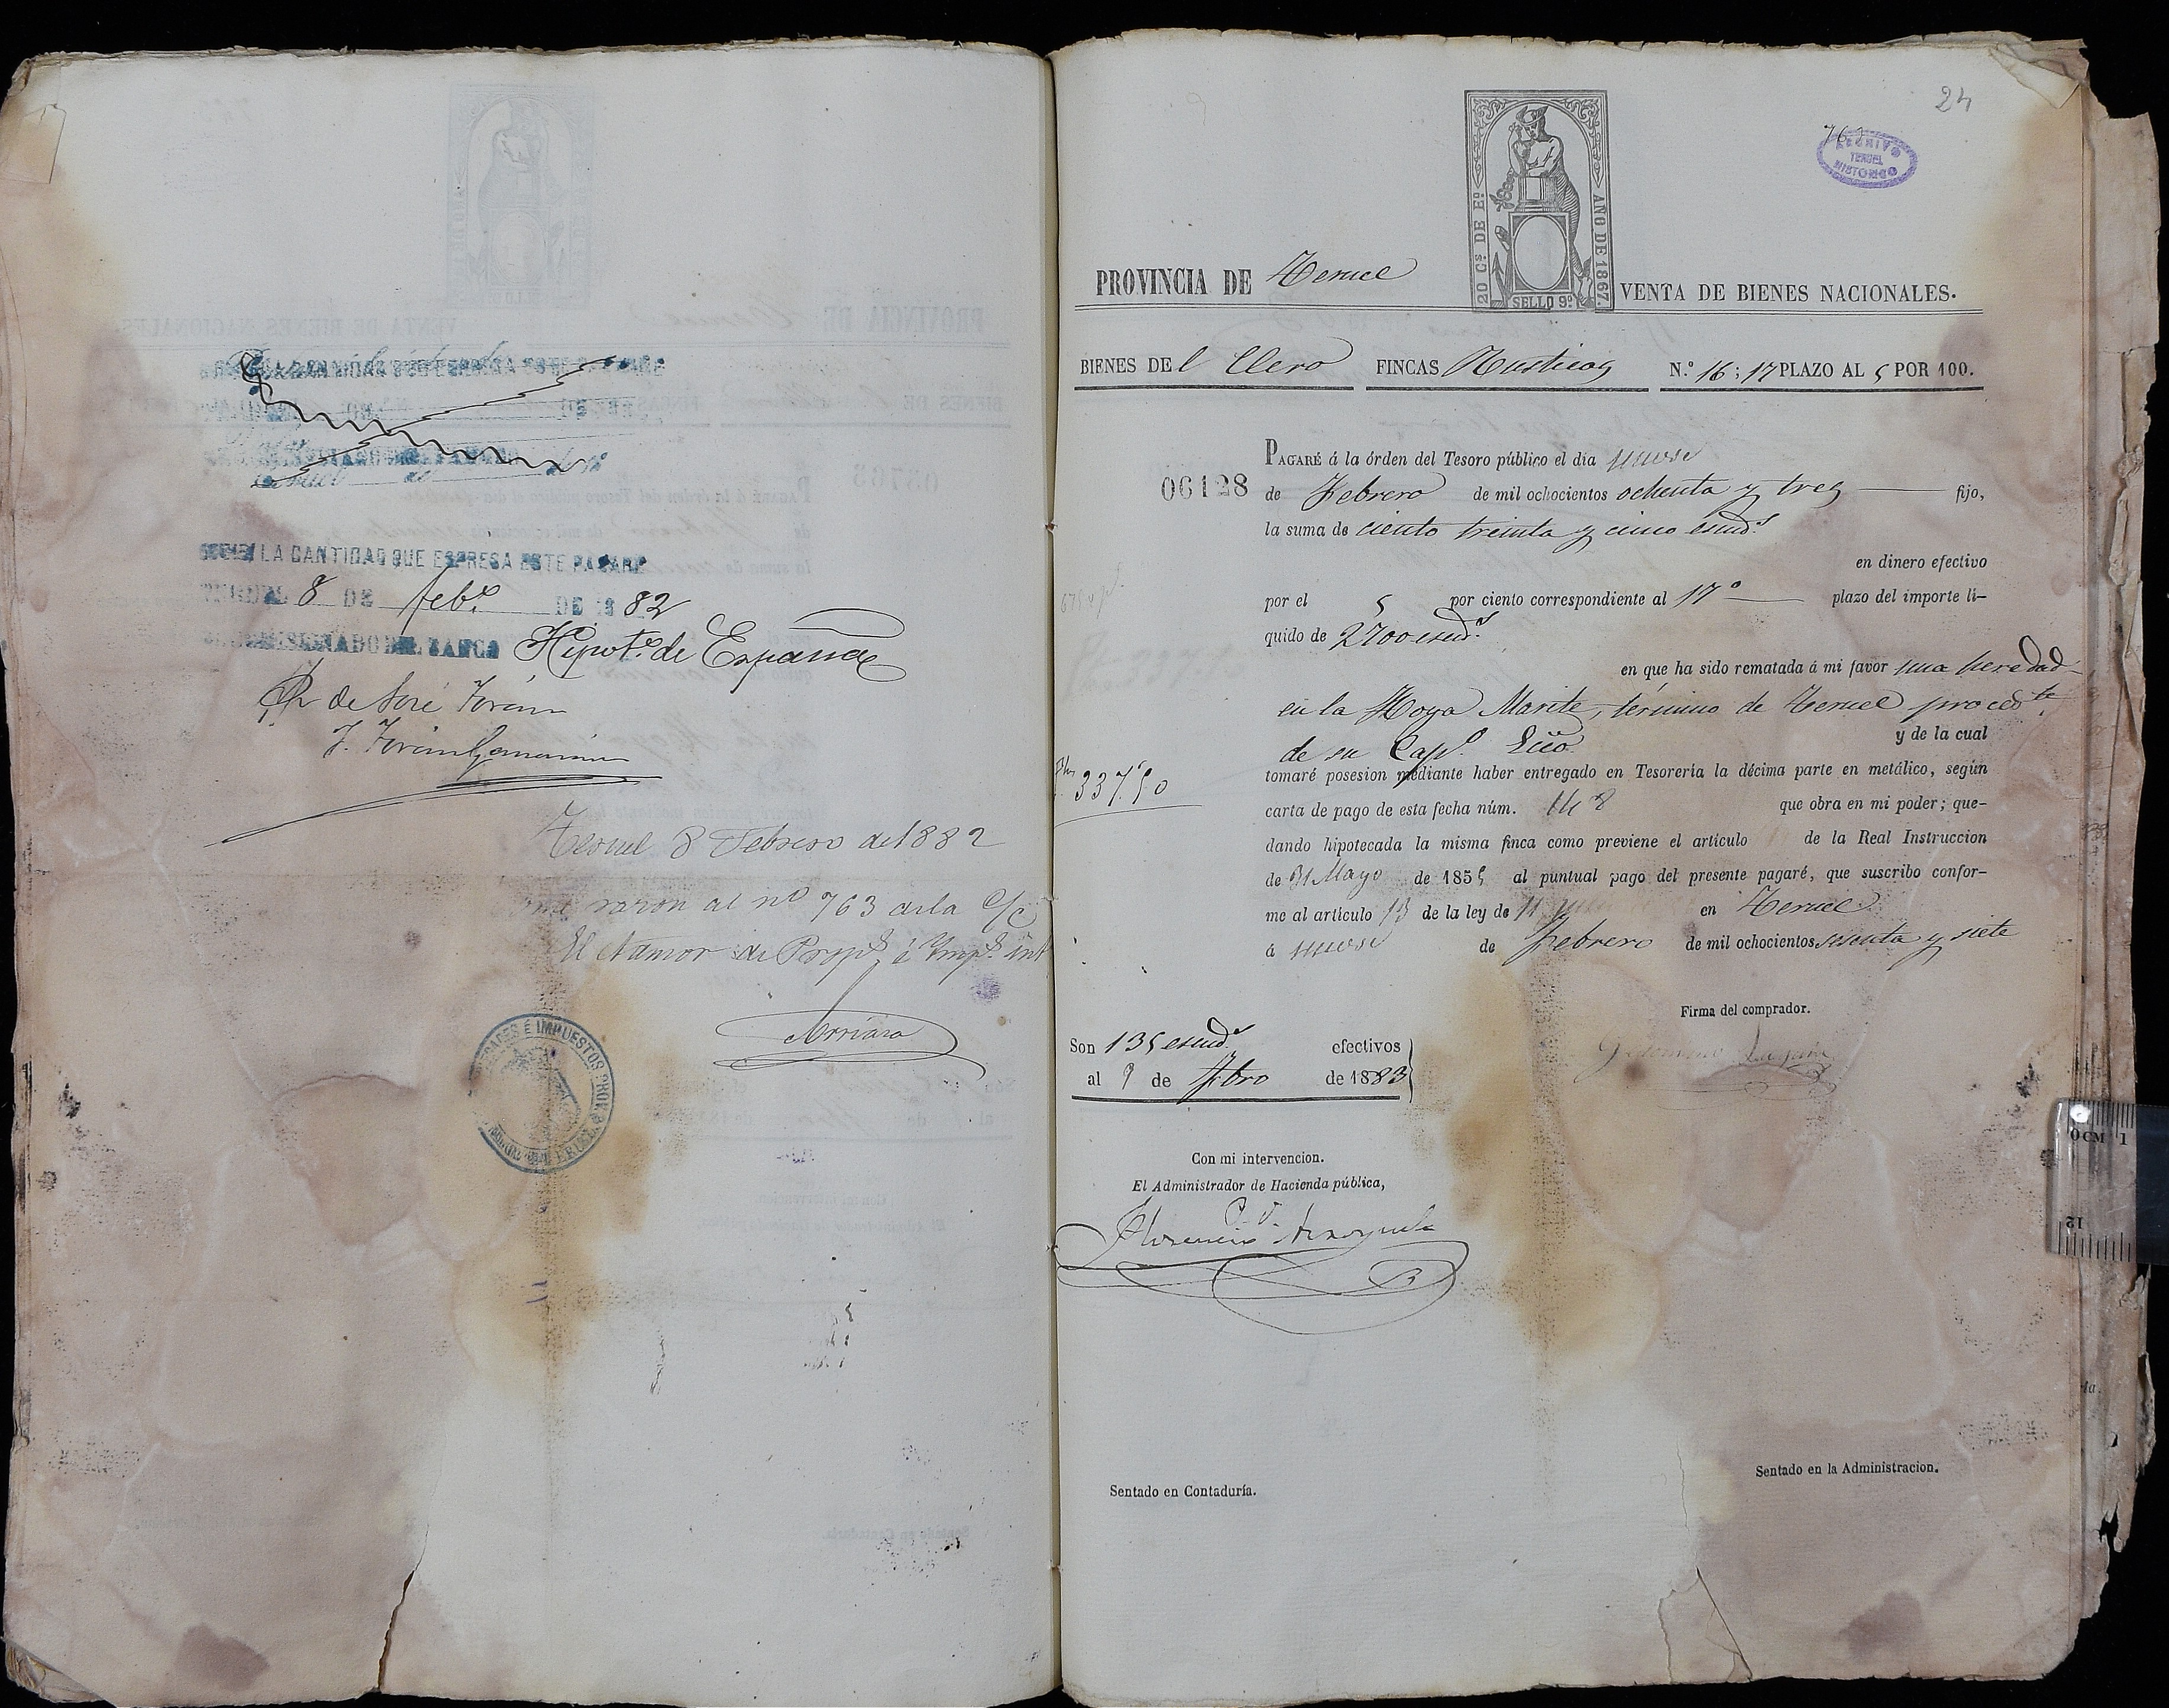 RECIBÍ LA CANTIDAD QUE ESPRESA ESTE PAGARÉ
TERUEL 8 DE Feb.o DE 1882
DEL BANCO Hipot.o de España
P. de José Torán
J. Torán
Teruel 8 Febrero de 1882
razon al nº 763 de la C/c
El Admor de Prop.s é Imp.s int
Arrizara
É IMPUESTOS
24
763
ARCHIVO
TERUEL
HISTORICO
20 Cs DE Eo
AÑO DE 1867.
SELLO 9º
PROVINCIA DE Teruel
VENTA DE BIENES NACIONALES.
BIENES DEl Clero FINCAS Rusticas N.º 16; 17 PLAZO AL 5 POR 100.
06128
PAGARÉ á la órden del Tesoro público el dia nueve
de Febrero de mil ochocientos ochenta y tres fijo,
la suma de ciento treinta y cinco escud.s
en dinero efectivo
por el 5 por ciento correspondiente al 17º plazo del importe li-
quido de 2700 escud.s
en que ha sido rematada á mi favor una heredad
en la Hoya Marite, término de Teruel proced.te
de su Cap.l Ecco. y de la cual
tomaré posesion mediante haber entregado en Tesorería la décima parte en metálico, según
337'50
carta de pago de esta fecha núm. 148 que obra en mi poder; que-
dando hipotecada la misma finca como previene el artículo de la Real Instruccion
de 31 Mayo de 1855 al puntual pago del presente pagaré, que suscribo confor-
me al artículo 13 de la ley de 11 en Teruel
á nueve de Febrero de mil ochocientos sesenta y siete
Firma del comprador.
Son 135 escud.s efectivos
al 9 de Fbro de 1883
Con mi intervencion.
El Administrador de Hacienda pública,
P. V.
Florencio
Sentado en la Administracion.
Sentado en Contaduría.
0CM 1
12